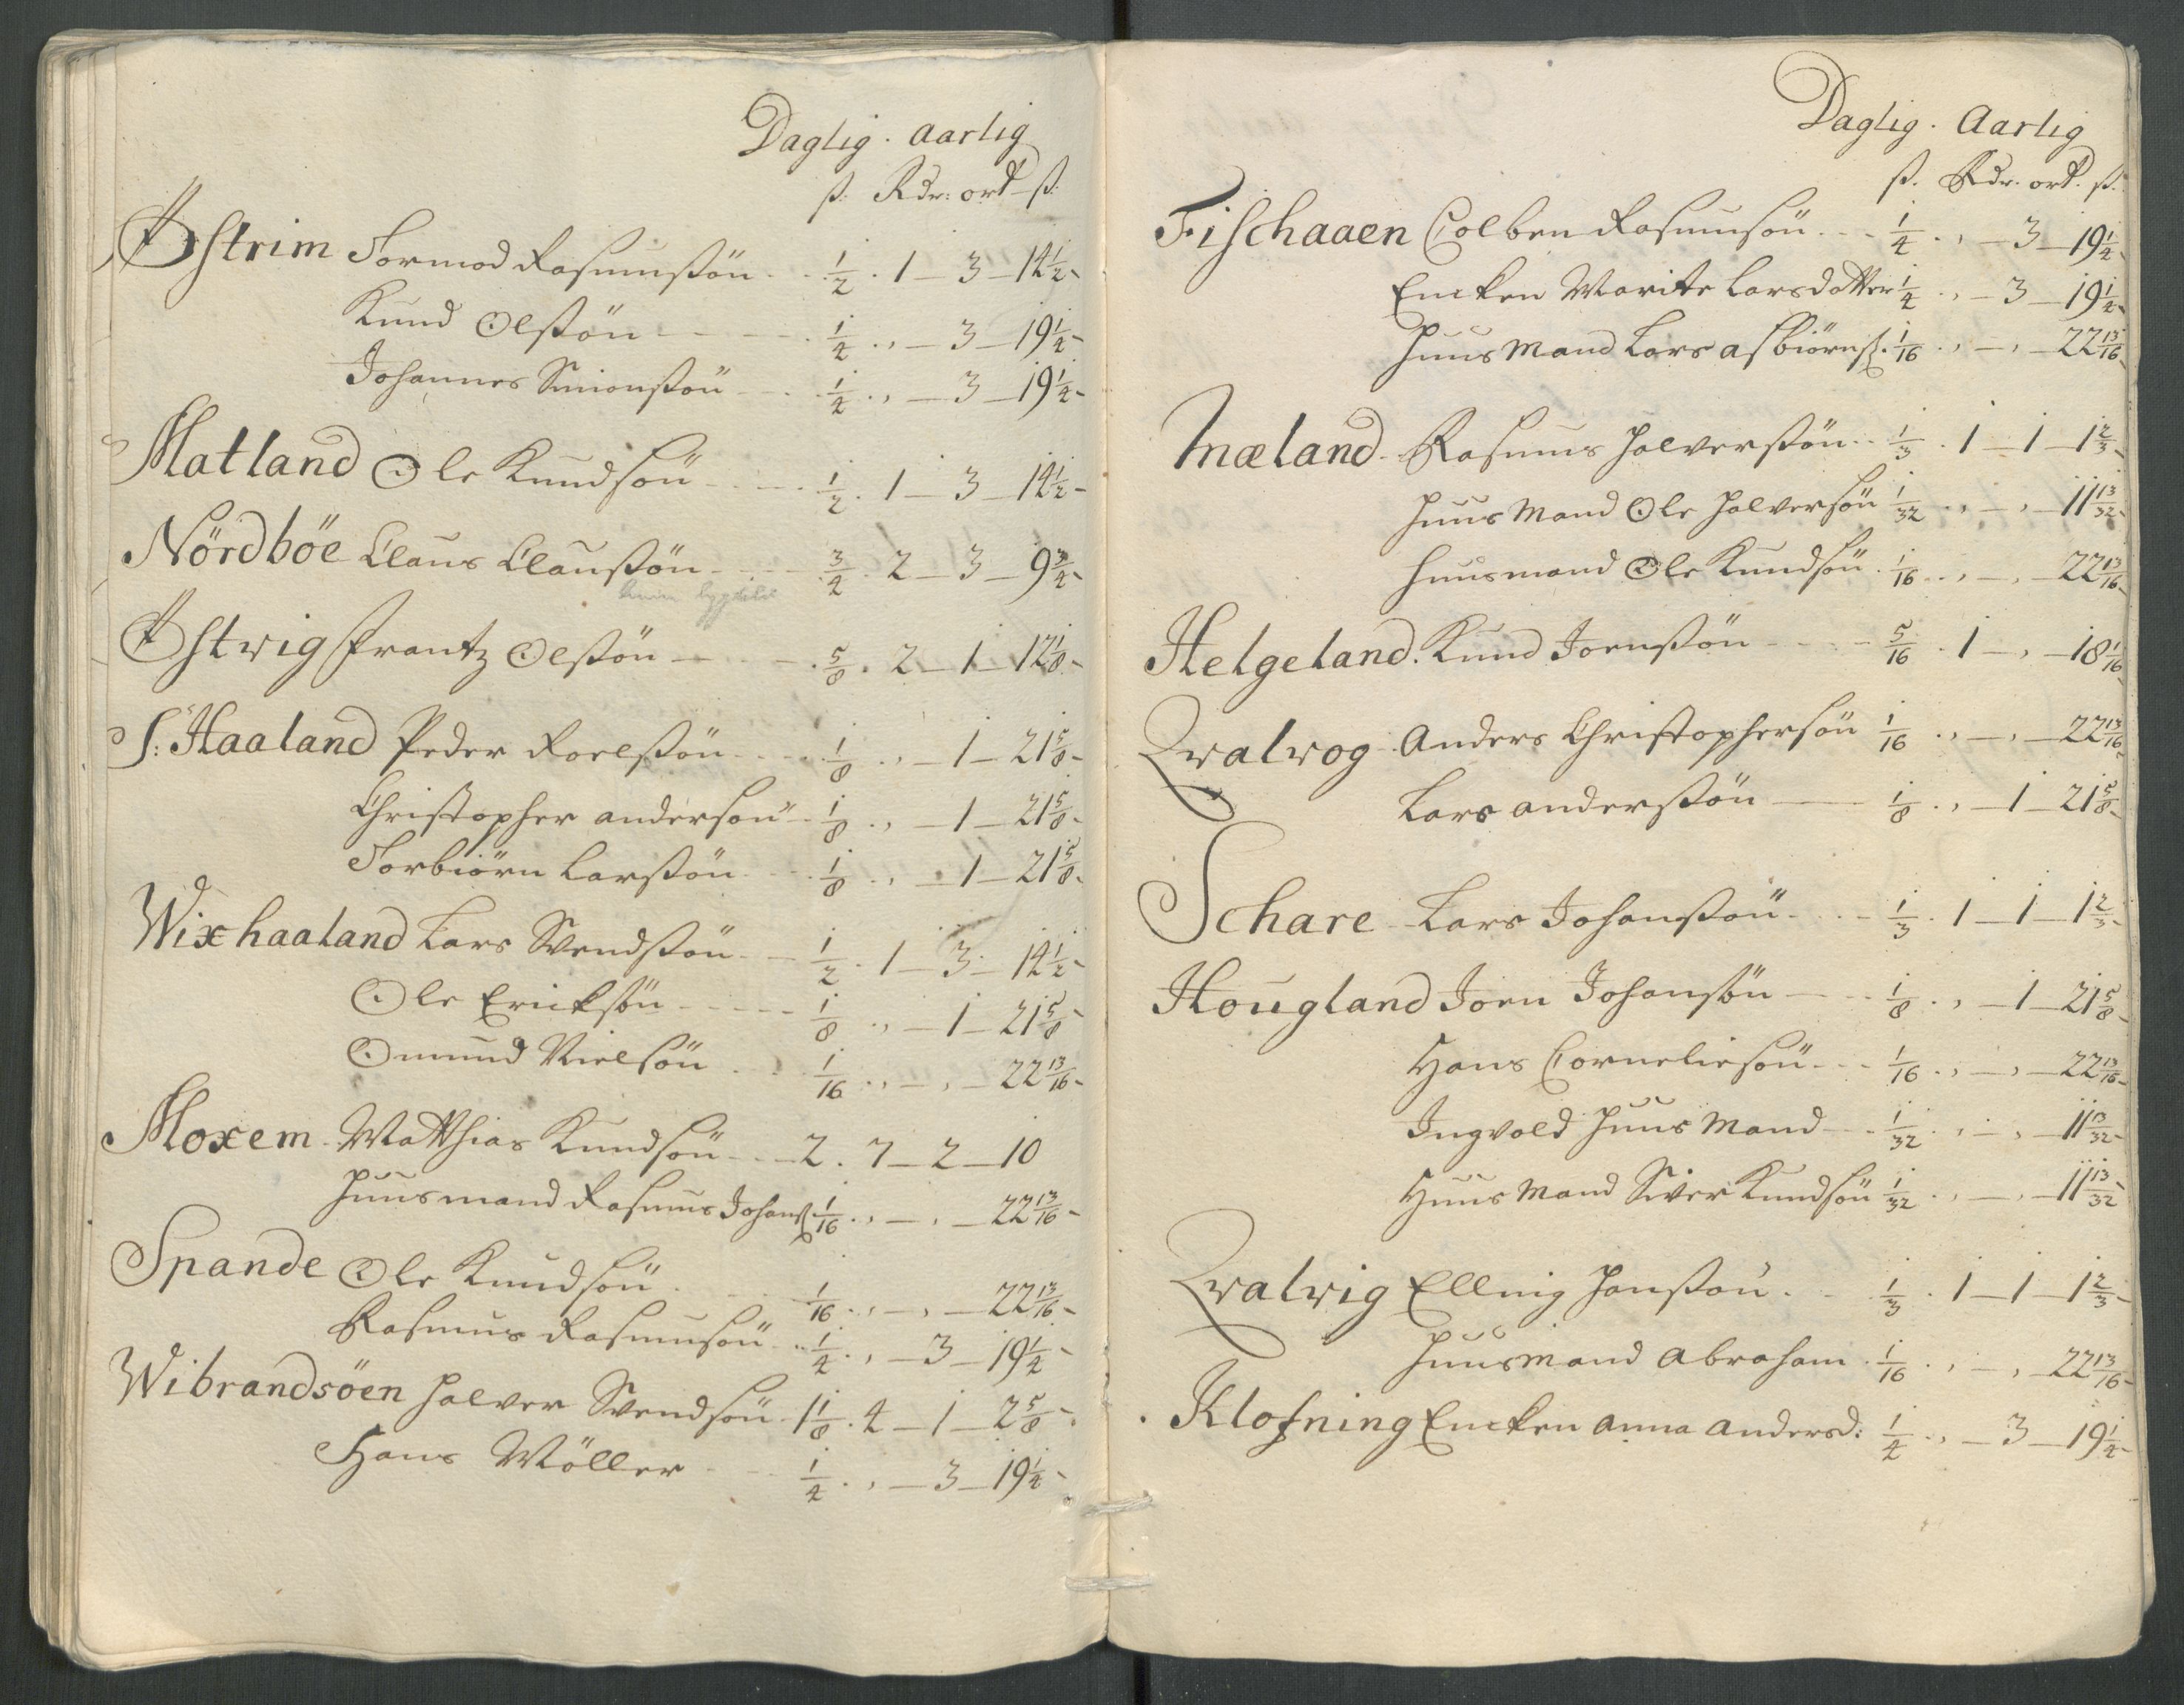 Daglig. Aarlig
ß. Rdr: ort ß.
Østrim Tormod Rasmusßön 1/2. 1 — 3 — 14 1/2
Knud Olßön 1/4. , — 3 — 19 1/4
Johannes Simonßön 1/4. , — 3 — 19 1/4
Matland Ole Knudsön 1/2. 1 — 3 — 14 1/2
Nördböe Claus Claußön 3/4. 2 — 3 — 9 3/4
Østwig Frantz Olßön 5/8. 2 — 1 — 12 1/8
S: Haaland Peder Roelßön 1/8. , — 1 — 21 5/8
Christopher andersön 1/8. , — 1 — 21 5/8
Torbiörn Larßön 1/8. , — 1 — 21 5/8
Wixhaaland Lars Svendßön 1/2. 1 — 3 — 14 1/2
Ole Ericksön 1/8. , — 1 — 21 5/8
Omund Nielsön 1/16. , — , — 22 13/16
Moxem Matthias Knudsön 2. 7 — 2 — 10
Huusmand Rasmus Johanß. 1/16. , — , — 22 13/16
Spande Ole Knudsön 1/16. , — , — 22 13/16
Rasmus Rasmusön 1/4. , — 3 — 19 1/4
Wibrandsöen Halver Svendsön 1 1/8. 4 — 1 — 2 5/8
Hans Möller 1/4. , — 3 — 19 1/4
Daglig. Aarlig
ß. Rdr. ort. ß.
Fischaaen Colben Rasmusön 1/4. , — 3 — 19 1/4
Encken Marite Larsdatter 1/4. , — 3 — 19 1/4
Huus Mand Lars asbiörnß. 1/16. , — , — 22 13/16
Mæland Rasmus Halverßön 1/3. 1 — 1 — 1 2/3
Huus Mand Ole Halversön 1/32. , — , — 11 13/32
Huusmand Ole Knudsön 1/16. , — , — 22 13/16
Helgeland. Knud Joenßön 5/16. 1 — , — 18 1/16
Qvalvog Anders Christophersön 1/16. , — , — 22 13/16
Lars anderßön 1/8. , — 1 — 21 5/8
Schare Lars Johanßön 1/3. 1 — 1 — 1 2/3
Hougland Joen Johansön 1/8. , — 1 — 21 5/8
Hans Corneliesön 1/16. , — , — 22 13/16
Ingvold Huus Mand 1/32. , — , — 11 13/32
Huus Mand Siver Knudsön 1/32. , — , — 11 13/32
Qvalvig Elling Hanßön 1/3. 1 — 1 — 1 2/3
Huusmand Abraham 1/16. , — , — 22 13/16
Klofning Encken anna andersd: 1/4. , — 3 — 19 1/4